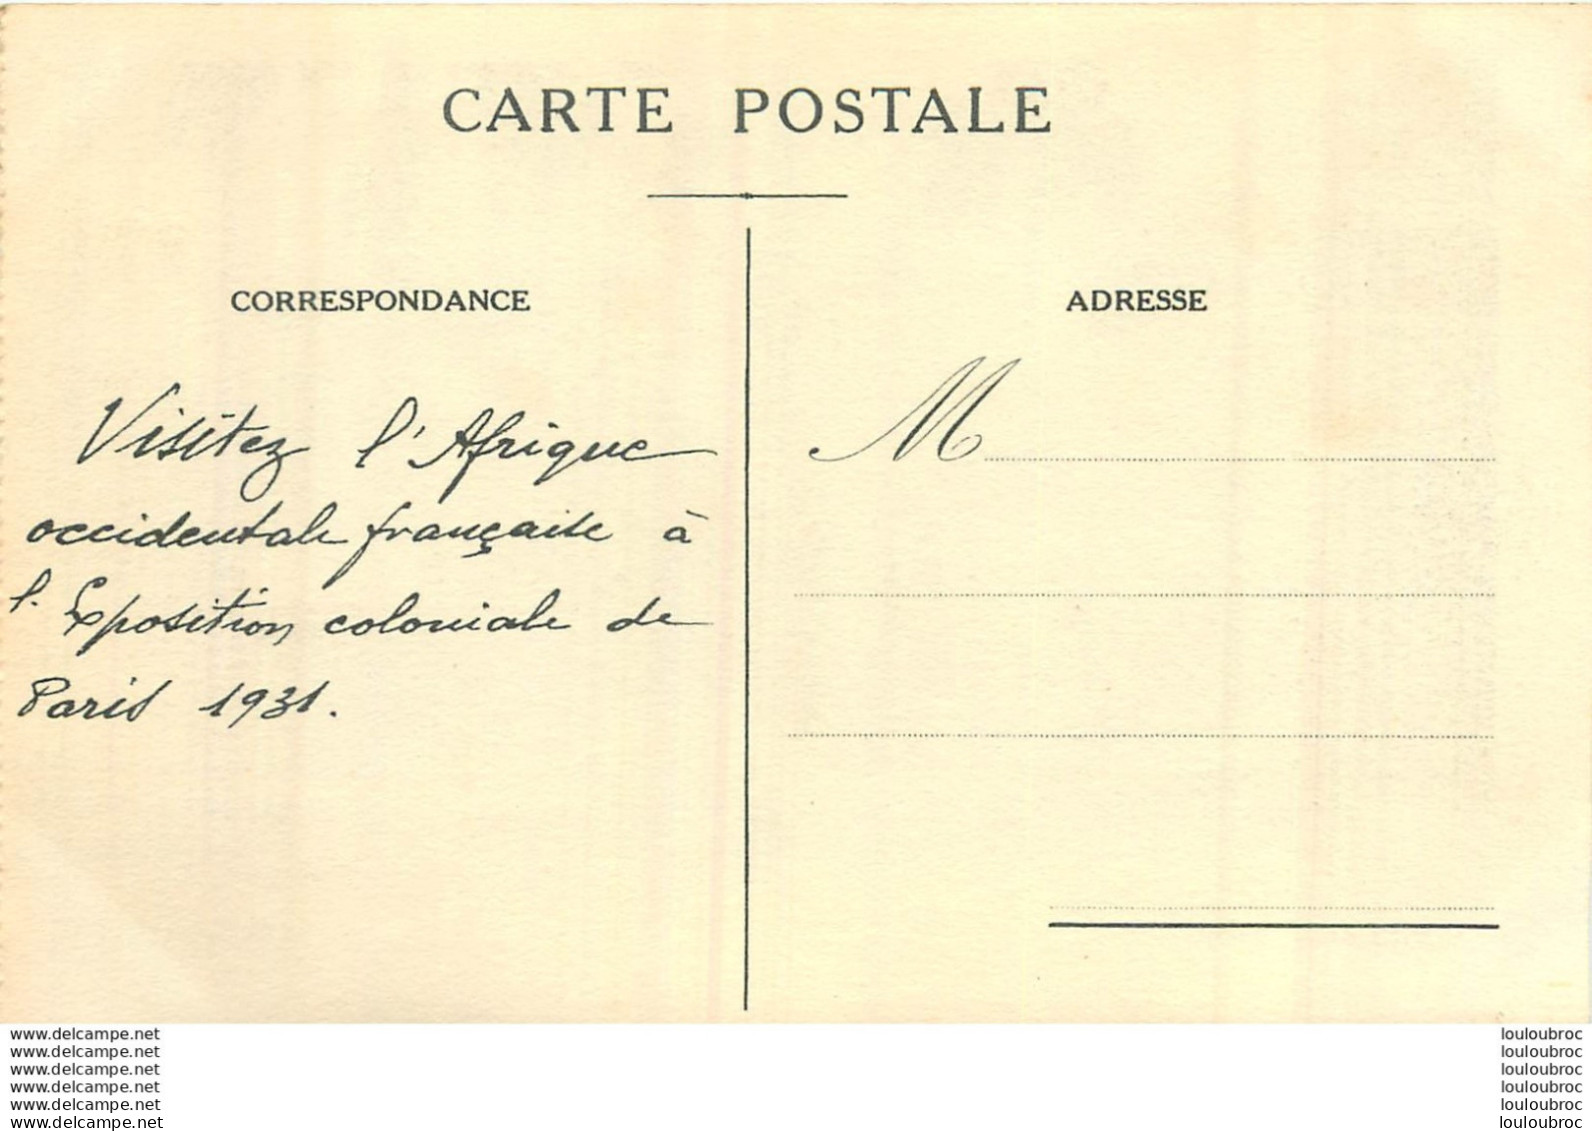 CARTE POSTALE
CORRESPONDANCE
Visitez l'Afrique
occidentale française à
l'Exposition coloniale de
Paris 1931.
ADRESSE
M
www.delcampe.net
www.delcampe.net
www.delcampe.net
www.delcampe.net
www.delcampe.net
www.delcampe.net
louloubroc
louloubroc
louloubroc
louloubroc
louloubroc
louloubroc